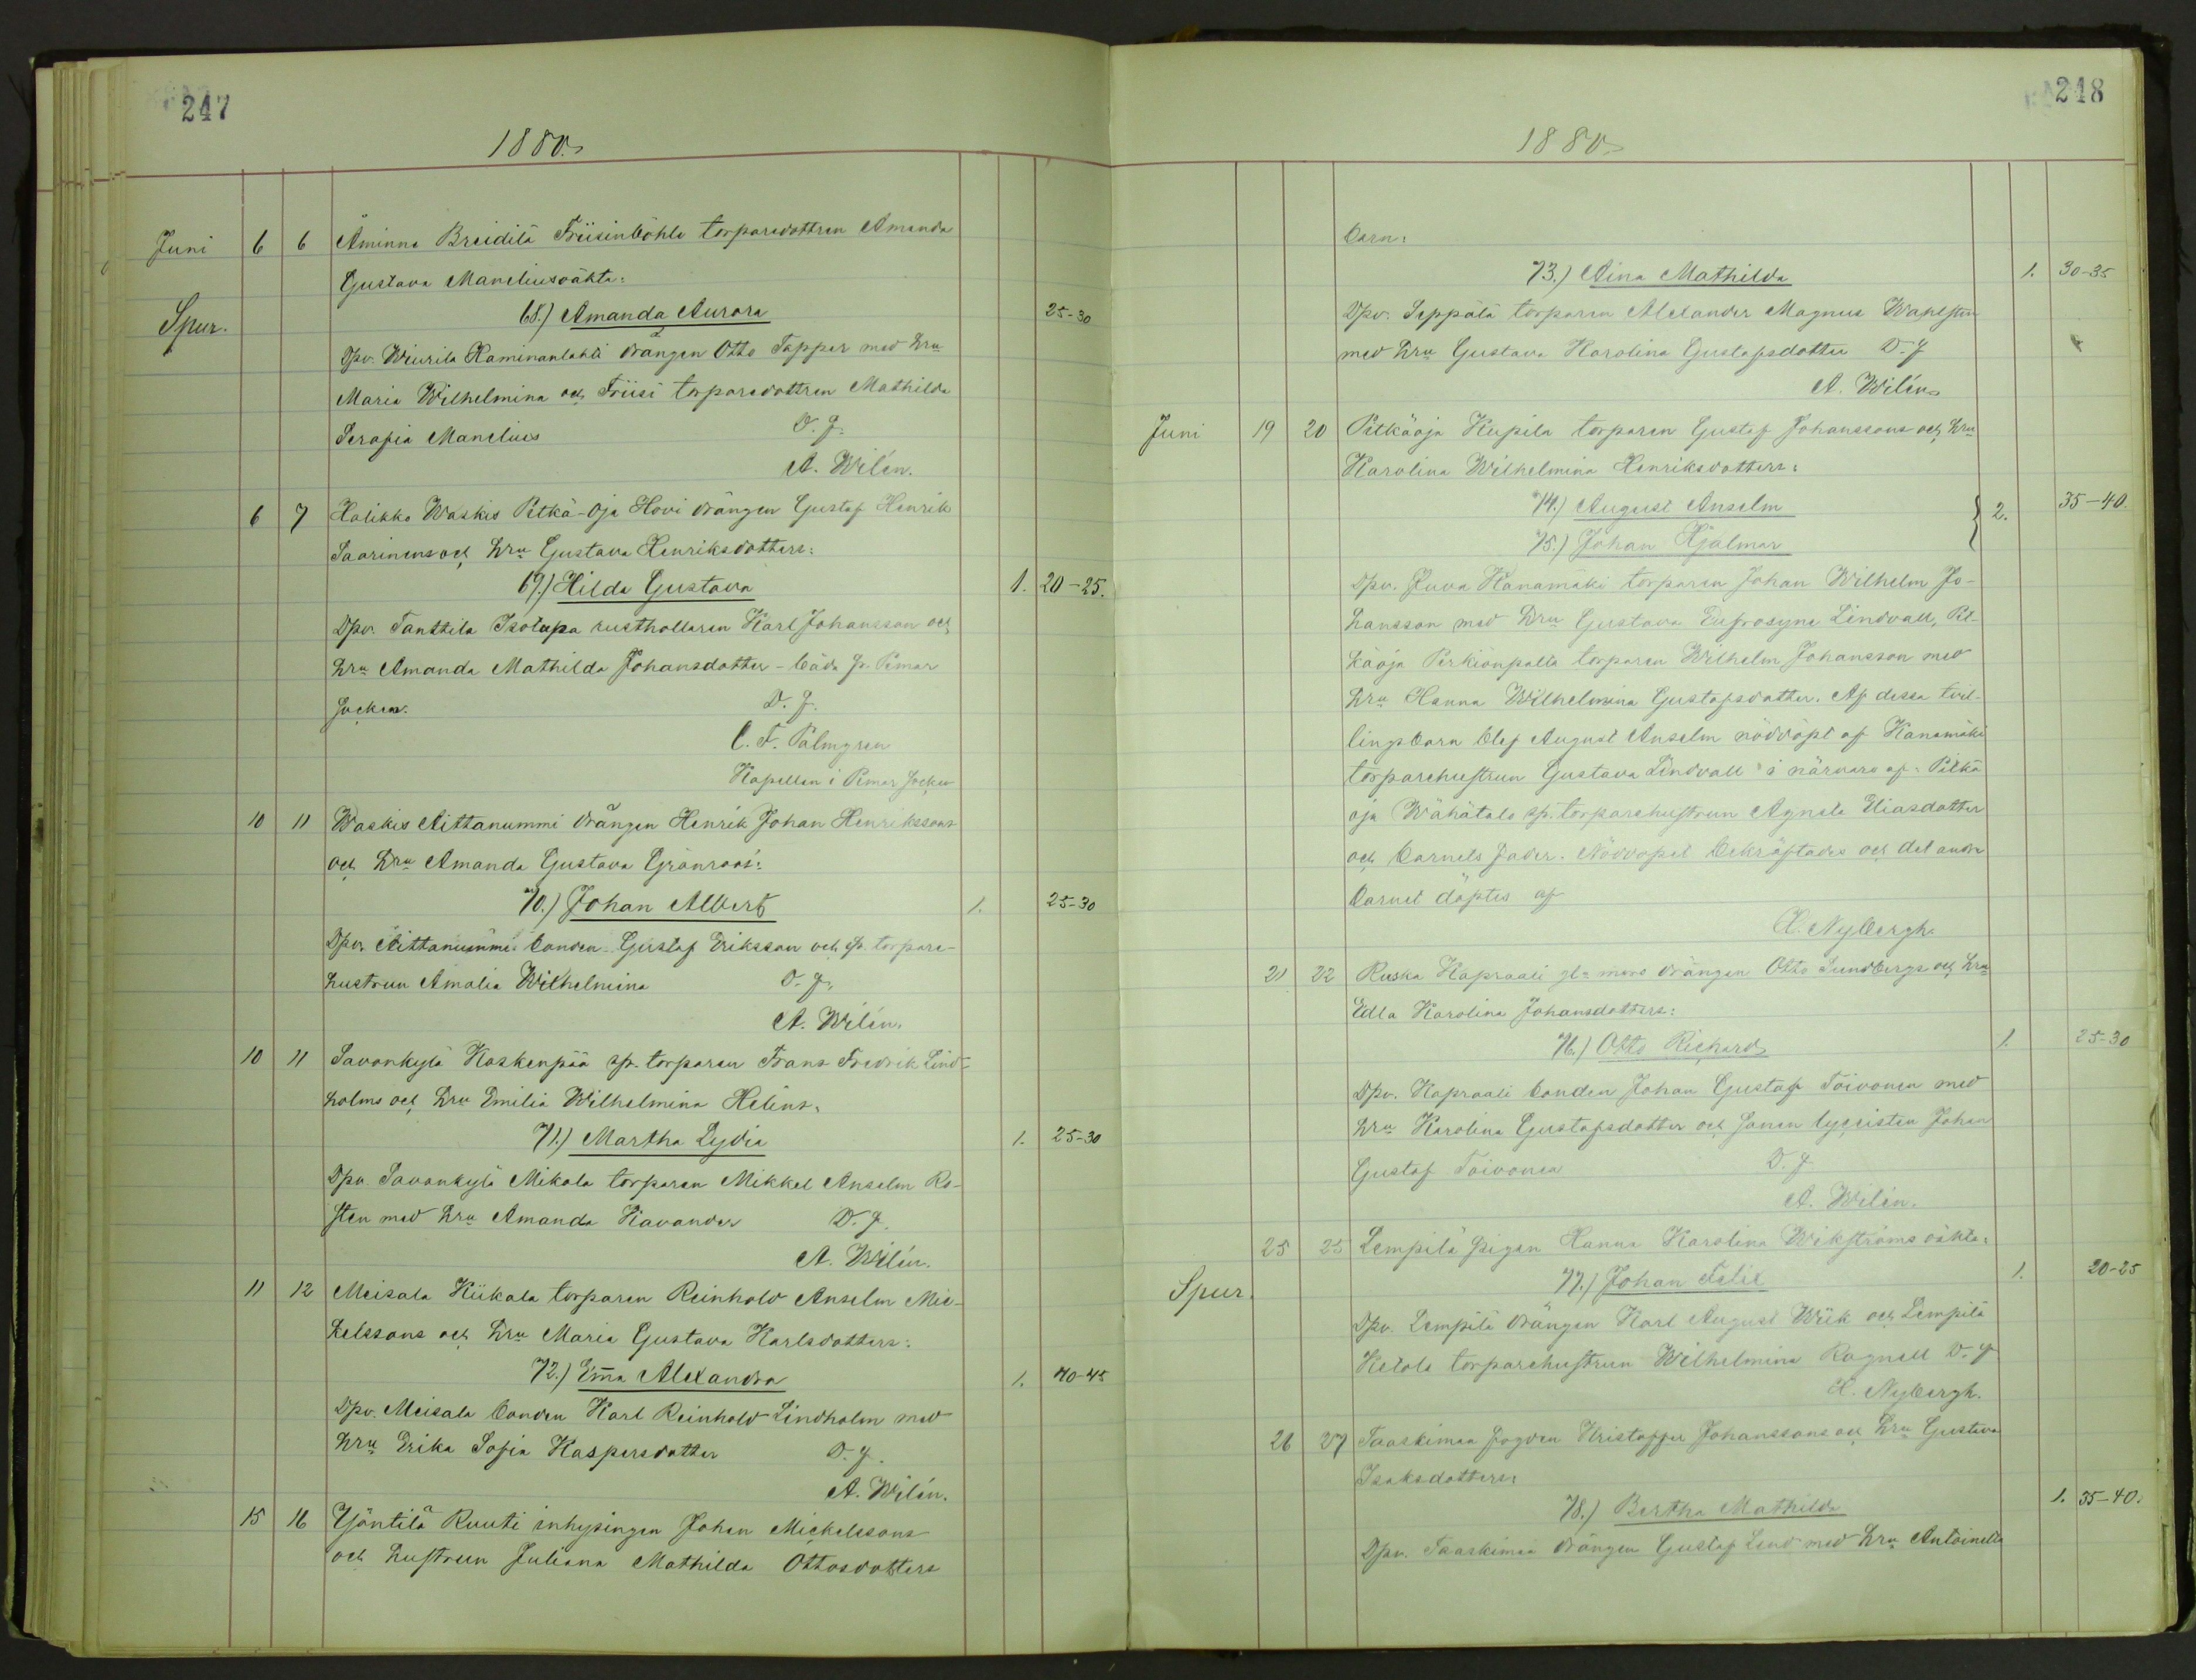 247
1880.
Juni 6 6 Åminne Breidilä Friisinböhle torparedottren Amanda
Gustava Maneliusoäkta:
Spur. 68.) Amanda Aurora 25-30
Dpv. Wiurila Kaminanlahti drängen Otto Tapper med hru
Maria Wilhelmina och Friisi torparedottren Mathilda
Serafia Manelius D. J.
A. Wilén.
6 7 Halikko Waskis Pitkä-oja Hovi drängen Gustaf Henrik
Saarinens och hru Gustava Henriksdotters:
69.) Hilda Gustava 1. 20-25.
Dpv. Tanttila Isotupa rusthollaren Karl Johansson och
hru Amanda Mathilda Johansdotter - båda fr. Pemar
Socken. D. J.
C. F. Palmgren
Kapellan i Pemar Socken
10 11 Waskis Aittanummi drängen Henrik Johan Henrikssons
och hru Amanda Gustava Grönroos':
70.) Johan Albert 1. 25-30
Dpv. Aittanummi bonden Gustaf Eriksson och sp. torpare-
hustrun Amalia Wilhelmina D. J.
A. Wilén.
10 11 Savonkylä Koskenpää sp. torparen Frans Fredrik Lind-
holms och hru Emilia Wilhelmina Helins.
71.) Martha Lydia 1. 25-30
Dpv. Savonkylä Mikola torparen Mikkel Anselm Ro-
sten med hru Amanda Kavander D. J.
A. Wilén.
11 12 Meisala Kiikala torparen Reinhold Anselm Mic-
kelssons och hru Maria Gustava Karlsdotters:
72.) Emma Alexandra 1. 40-45
Dpv. Meisala bonden Karl Reinhold Lindholm med
hru Erika Sofia Kaspersdotter D. J.
A. Wilén.
15 16 Yöntilä Ruuti inhysingen Johan Michelssons
och hustrun Juliana Mathilda Ottosdotters
248
1880.
barn:
73.) Aina Mathilda 1. 30-35
Dpv. Seppälä torparen Alexander Magnus Wahlsten
med hru Gustava Karolina Gustafsdotter D. J
A. Wilén
Juni 19 20 Pitkäoja Kupila torparen Gustaf Johanssons och hru
Karolina Wilhelmina Henriksdotters:
74.) August Anselm 2. 35-40.
75.) Johan Hjalmar
Dpv. Juva Kanamäki torparen Johan Wilhelm Jo-
hansson med hru Gustava Eufrosyne Lindvall, Pit-
käoja Perkiönpalta torparen Wilhelm Johansson med
hru Hanna Wilhelmina Gustafsdotter. Af dessa tvil-
lingsbarn blef August Anselm nöddöpt af Kanamäki
torparehustrun Gustava Lindvall i närvaro af: Pitkä
oja Wähätalo sp. torparehustrun Agneta Eliasdotter
och barnets fader. Nöddopet bekräftades och det andra
barnet döptes af
H. Nybergh.
21 22 Ruska Kapraali drängen Otto Sundbergs och hru
Edla Karolina Johansdotters:
76.) Otto Richard 1. 25-30
Dpv. Kapraali bonden Johan Gustaf Toivonen med
hru Karolina Gustafsdotter och sonen lyceisten Johan
Gustaf Toivonen D. J
A. Wilén.
25 25 Lempilä pigan Hanna Karolina Wikströms oäkta:
Spur. 77.) Johan Felix 1. 20-25
Dpv. Lempilä drängen Karl August Wiik och Lempilä
Ketola torparehustrun Wilhelmina Ragnell D. J
H. Nybergh.
26 27 Taaskimaa fogden Kristoffer Johanssons och hru Gustava
Isaksdotters:
78.) Bertha Mathilda 1. 35-40.
Dpv. Taaskimaa drängen Gustaf Lind med hru Antoinetta